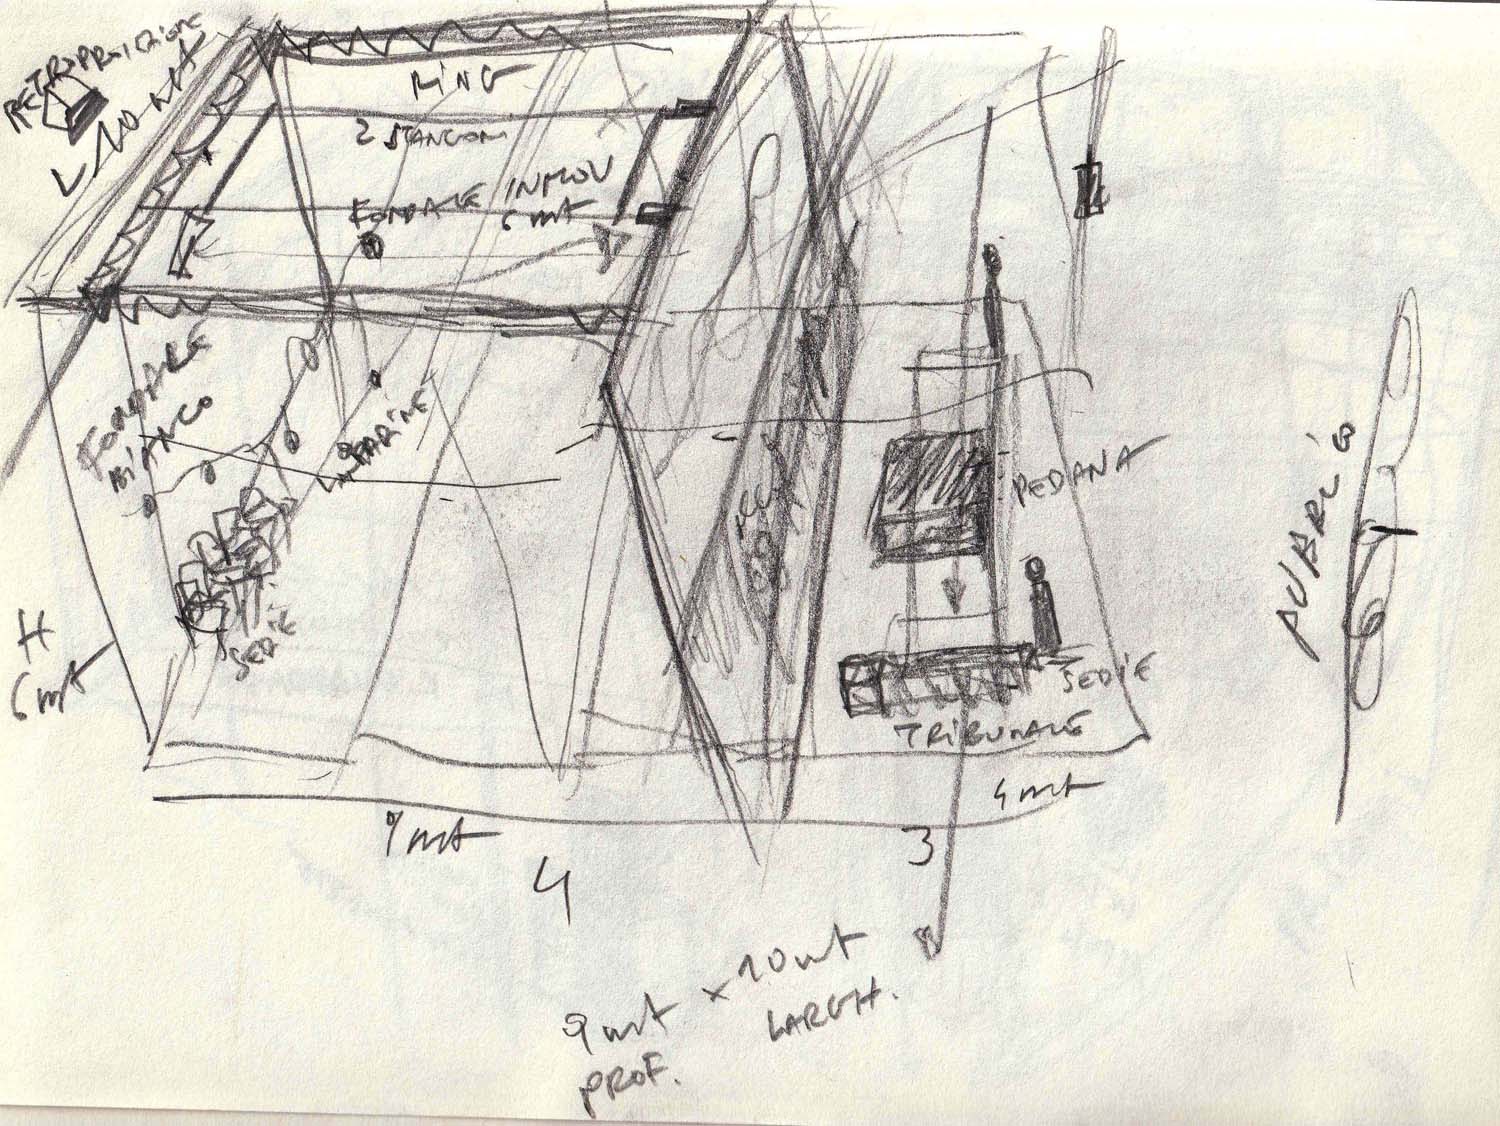 RETROPROIEZIONE
10 mt
RING
2 STANGONI
FONDALE IN MOV
6 mt
FONDALE
BIANCO
FARINE
SEDIE
H
6 mt
PEDANA
SEDIE
TRIBUNALE
PUBBLICO
9 mt
4 mt
4
3
9 mt x 10 mt
PROF.
LARGH.